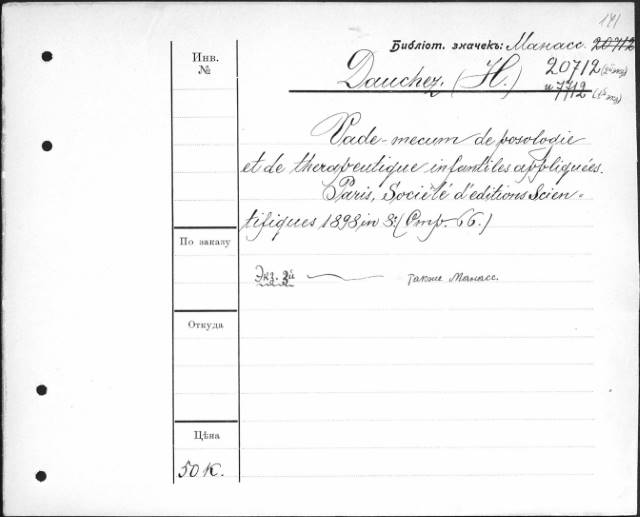 141
Библіот. значекъ: Манасс. 20712
Инв. №
Dauchez. (H.) 20712 (2й экз)
и 7712 (1й экз)
Vade-mecum de posologie
et de therapeutique infantiles appliquées.
Paris, Société d'editions Scien-
tifiques 1898 in 8º (Стр. 66.)
По заказу
Экз. 2й Также Манасс.
Откуда
Цѣна
50 к.